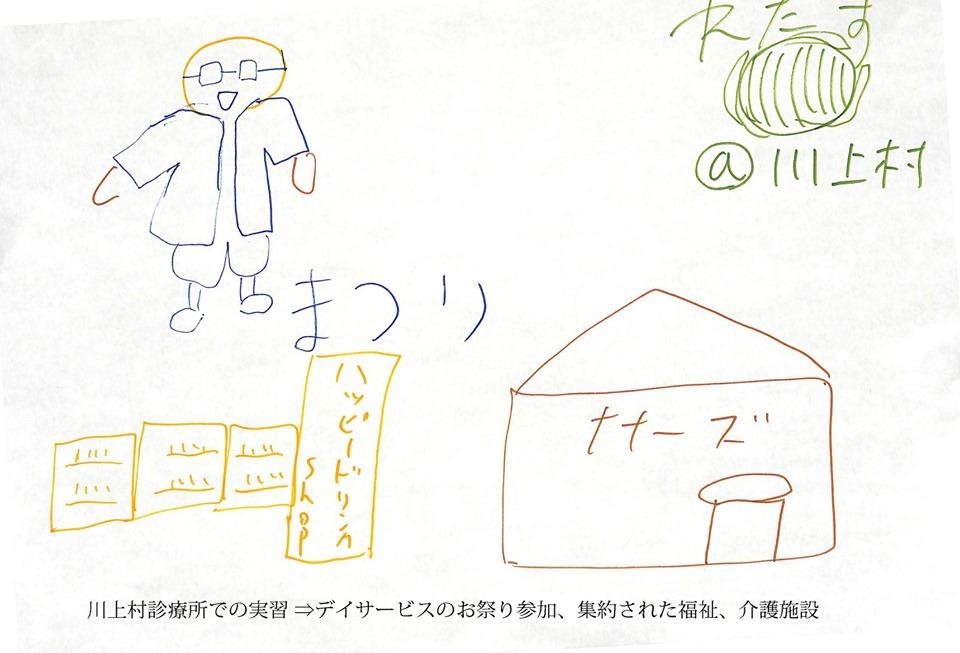 れたす
@川上村
まつり
ハッピードリンク
shop
ナナーズ
川上村診療所での実習⇒デイサービスのお祭り参加、集約された福祉、介護施設